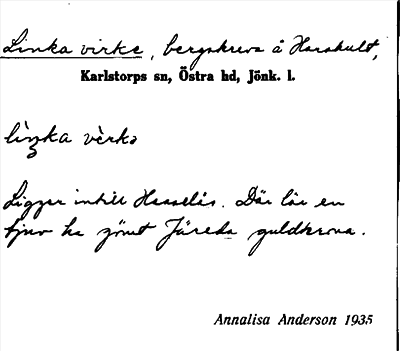 Linka virke, bergskreva å Harahult,
Karlstorps sn, Östra hd, Jönk. l.
lìŋka vèrkə
Ligger intill Hasselås. Där lär en
tjuv ha gömt Järeda guldkrona.
Annalisa Anderson 1935